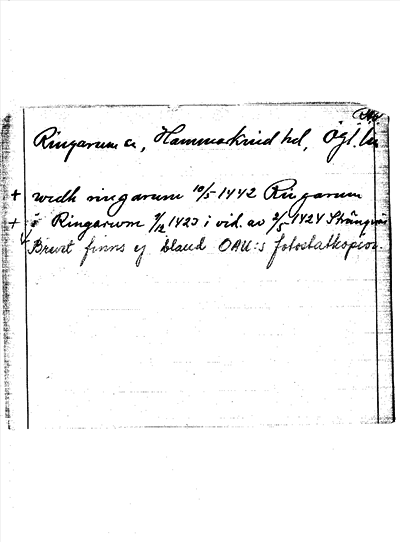 Ringarum sn, Hammarkind hd, Ögl. län
+ widh ringarum 10/5 1442 Ringarum
+ i Ringarum 7/12 1423 i vid. av 2/5 1424 Strängnäs
Brevet finns ej bland OAU:s fotostatkopior.